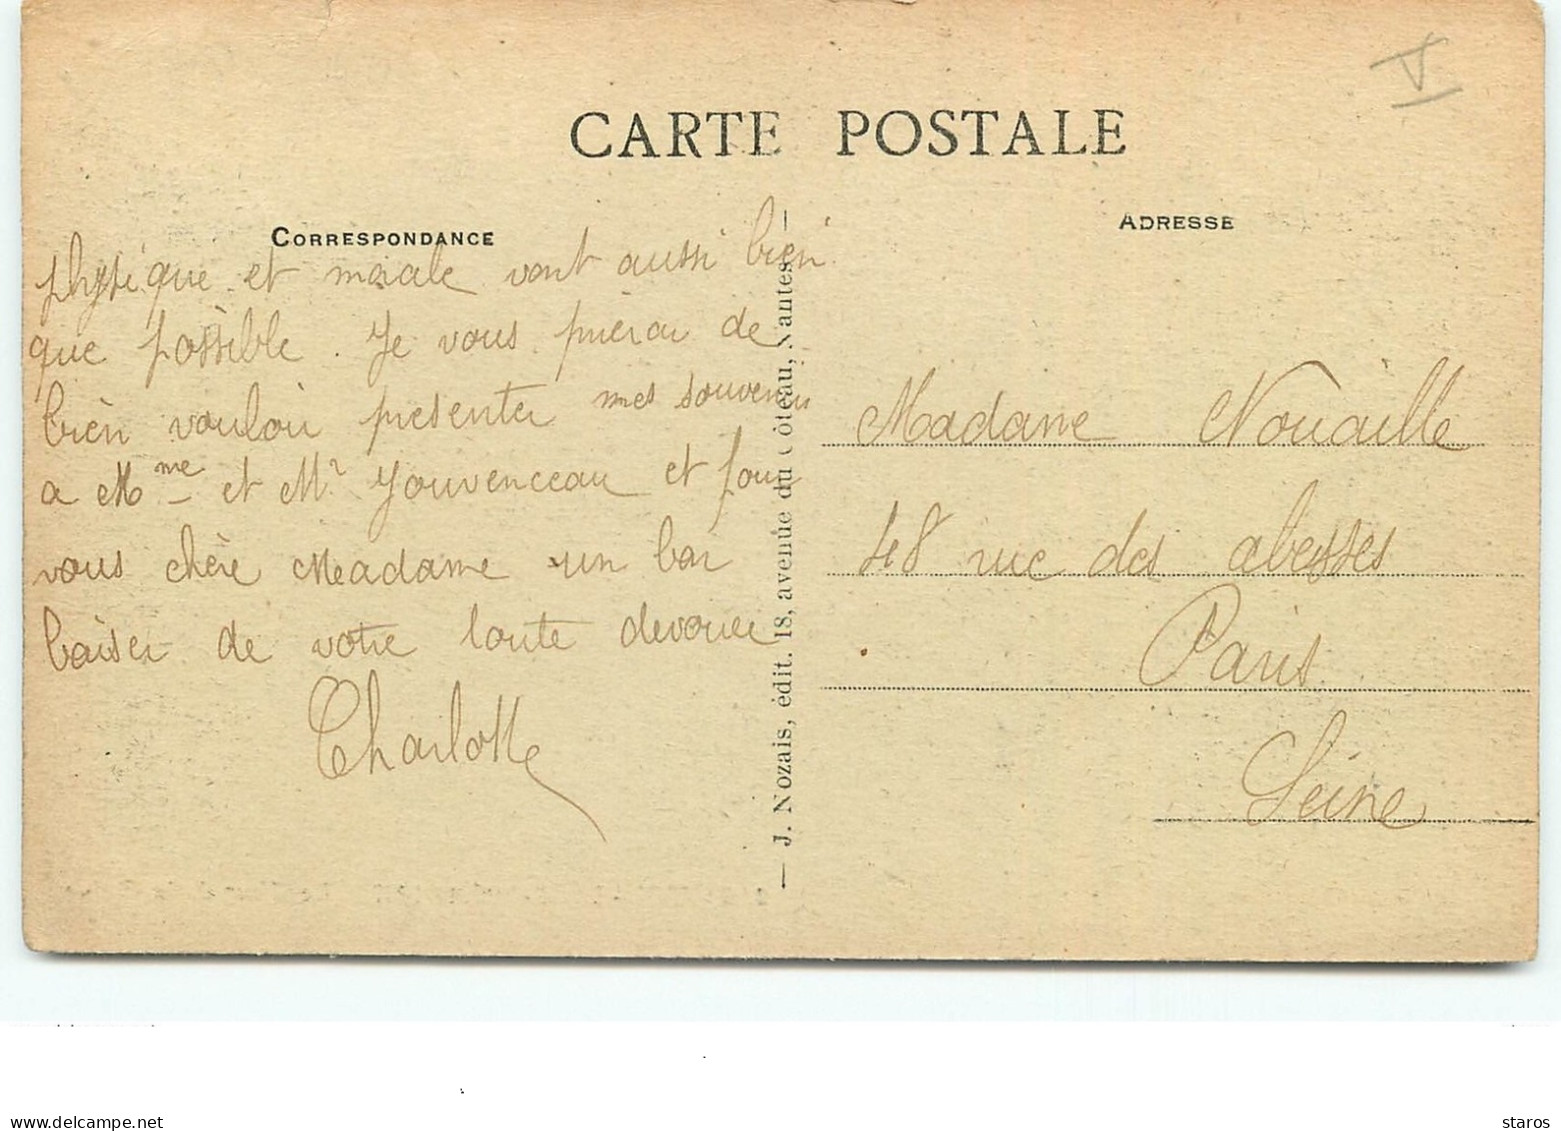 CARTE POSTALE
CORRESPONDANCE
physique et morale vont aussi bien
que possible. Je vous prierai de
bien vouloir presenter mes souvenirs
a Mme et Mr Jouvenceau et pour
vous chère Madame un bon
baiser de votre toute devouee
Charlotte
— J. Nozais, édit. 18, avenue du Côteau, Nantes —
ADRESSE
Madame Nouaille
48 rue des abesses
Paris
Seine
www.delcampe.net
staros